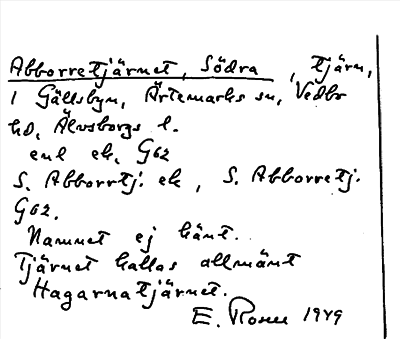 Abborretjärnet, Södra, tjärn,
i Gällsbyn, Ärtemarks sn, Vedbo
hd, Älvsborgs l.
enl ek, G62
S. Abborrtj. ek, S. Abborretj.
G62.
Namnet ej känt.
Tjärnet kallas allmänt
Hagarnatjärnet.
E. 1949